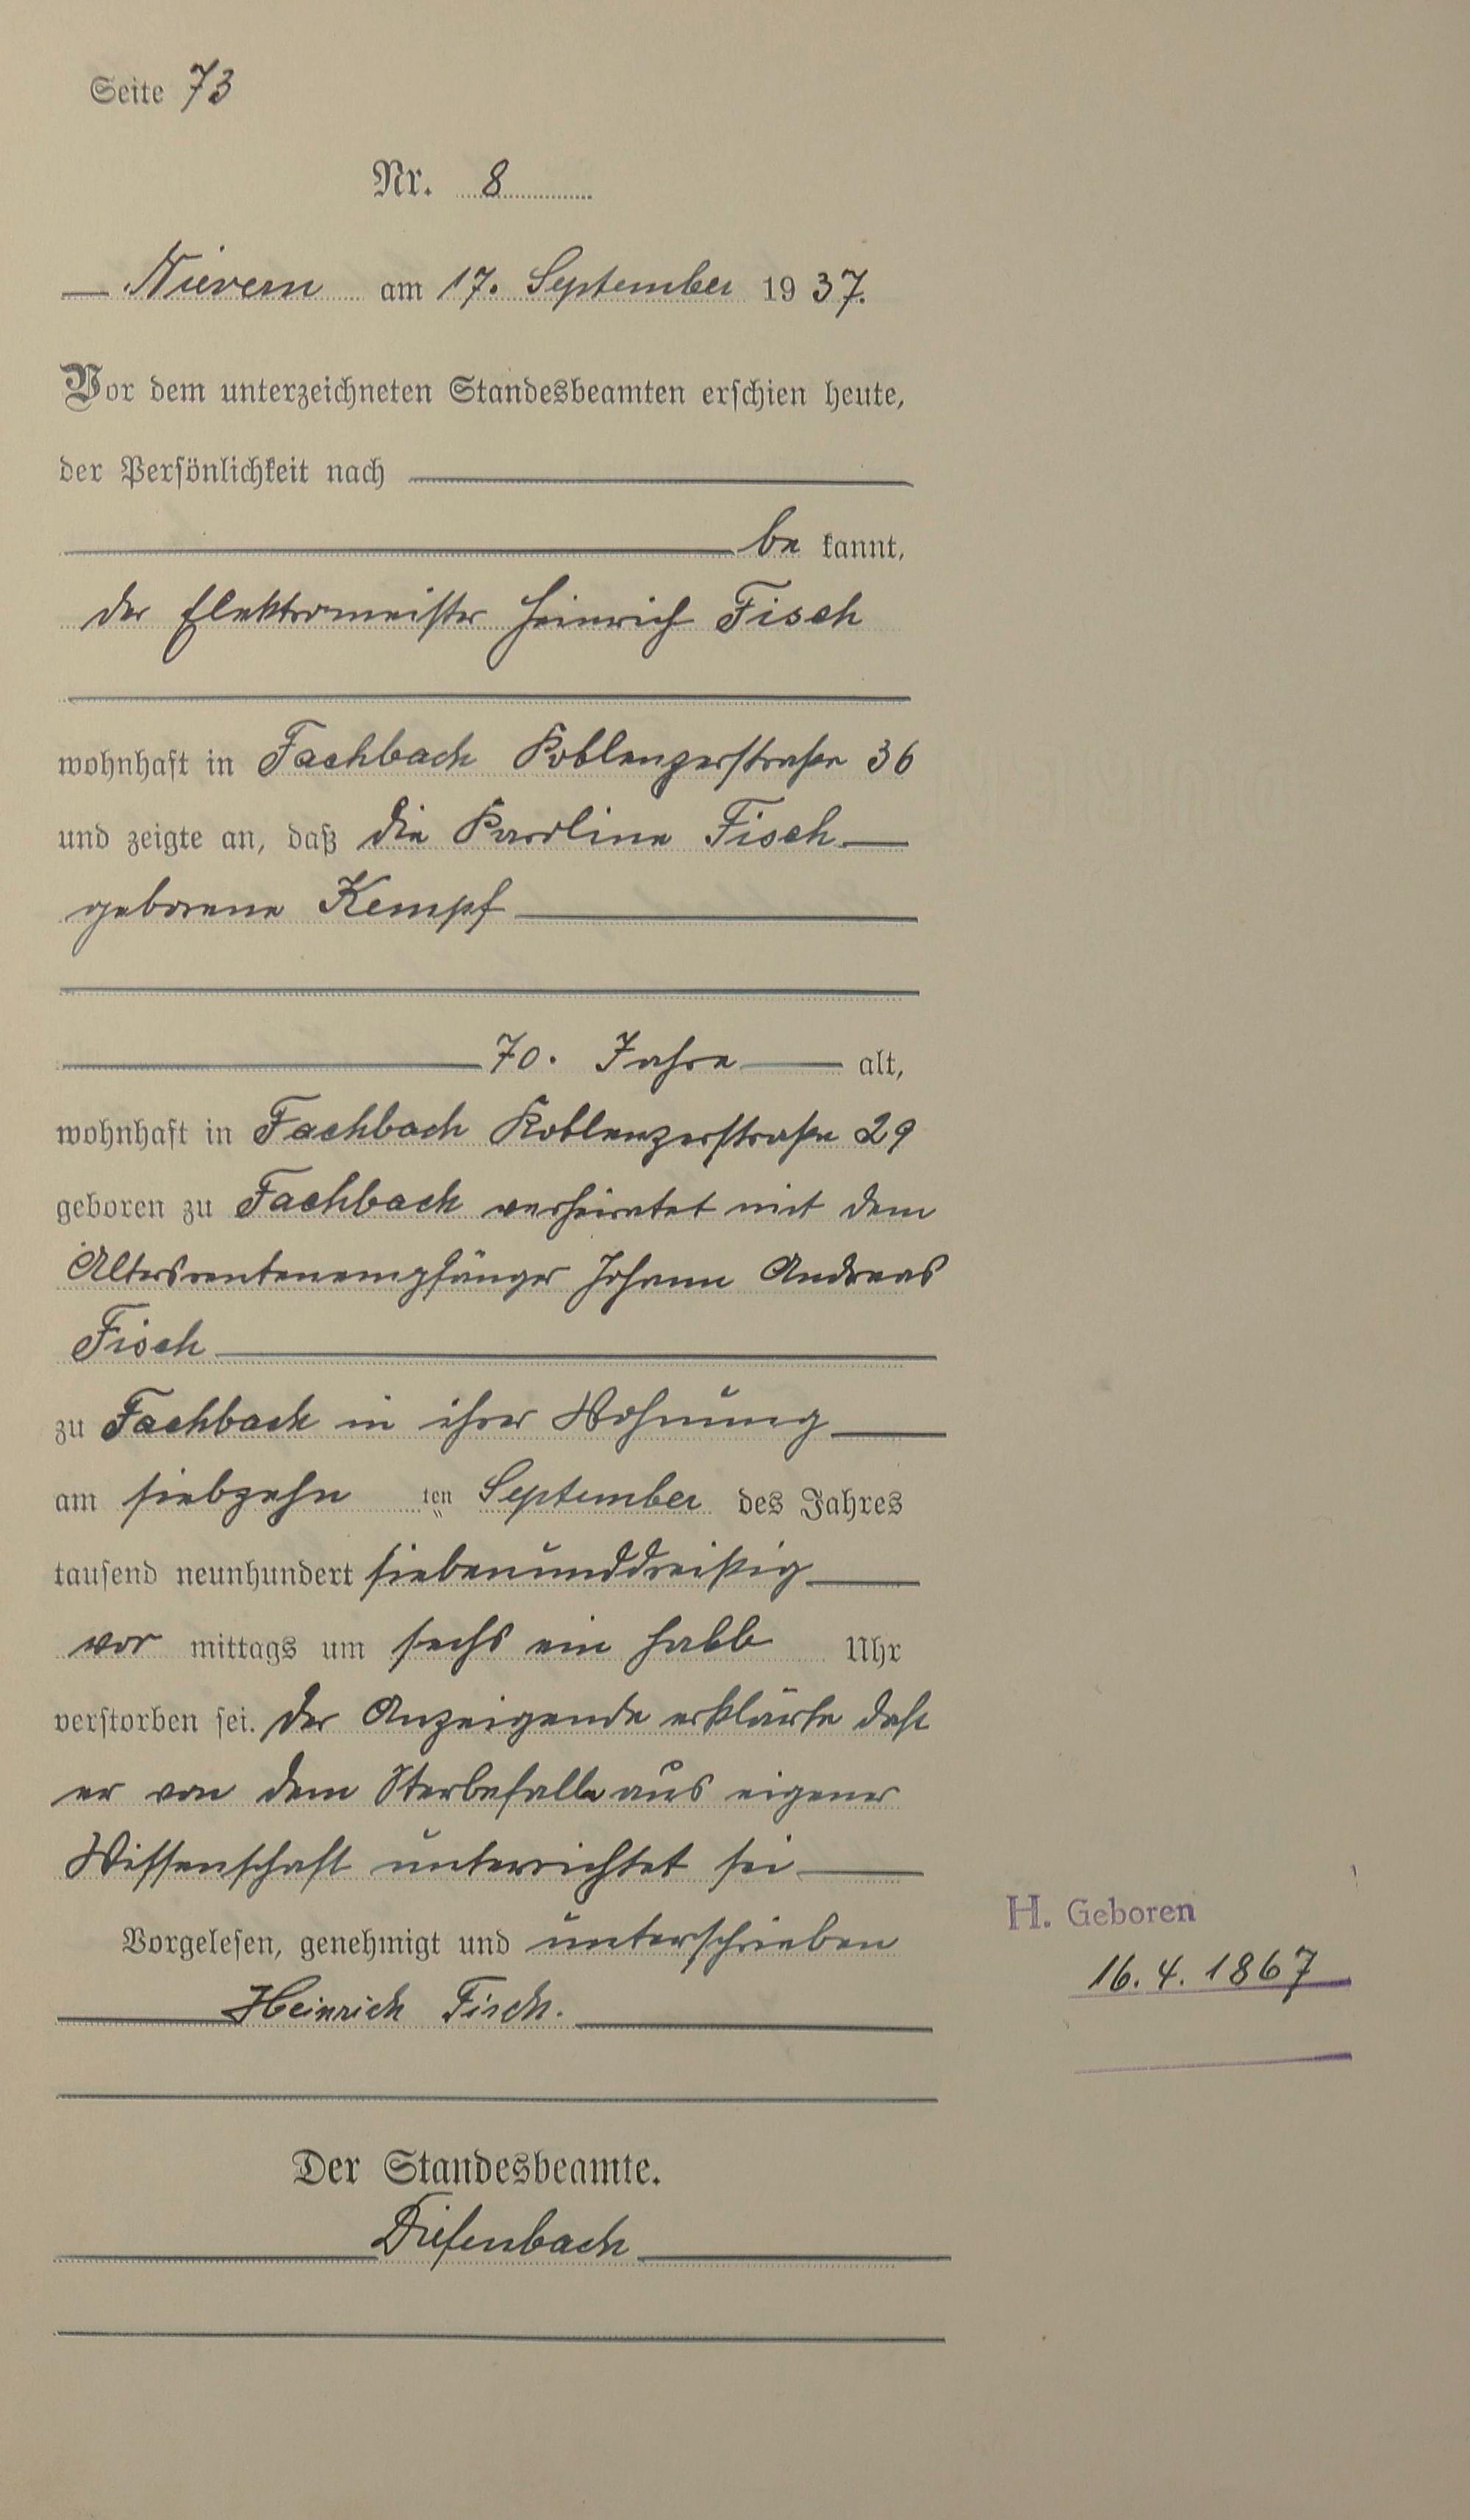 Seite 73
Nr. 8
Nievern am 17. September 1937.
Vor dem unterzeichneten Standesbeamten erschien heute,
der Persönlichkeit nach
be kannt,
der Elektromeister Heinrich Fisch
wohnhaft in Fachbach Koblenzerstraße 36
und zeigte an, daß die Karoline Fisch
geborene Kempf
70. Jahre alt,
wohnhaft in Fachbach Koblenzerstraße 29
geboren zu Fachbach verheiratet mit dem
Altersrentenempfänger Johann Andreas
Fisch
zu Fachbach in ihrer Wohnung
am siebzehn ten September des Jahres
tausend neunhundert siebenunddreißig
vor mittags um sechs ein halb Uhr
verstorben sei. Der Anzeigende erklärte daß
er von dem Sterbefalle aus eigener
Wissenschaft unterrichtet sei
Vorgelesen, genehmigt und unterschrieben
Heinrich Fisch.
H. Geboren
16. 4. 1867
Der Standesbeamte.
Diefenbach